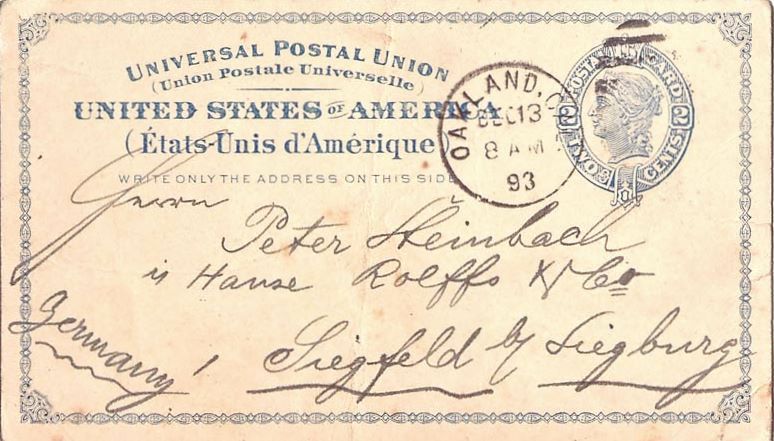 UNIVERSAL POSTAL UNION
(Union Postale Universelle)
UNITED STATES OF AMERICA
(États-Unis d'Amérique
WRITE ONLY THE ADDRESS ON THIS SIDE
OAKLAND, CAL
DEC 13
8 AM
93
POSTAL CARD
2 TWO CENTS 2
Herrn
Peter Steinbach
i/s Hause Rolffs & Co
Siegfeld by Siegburg
Germany!